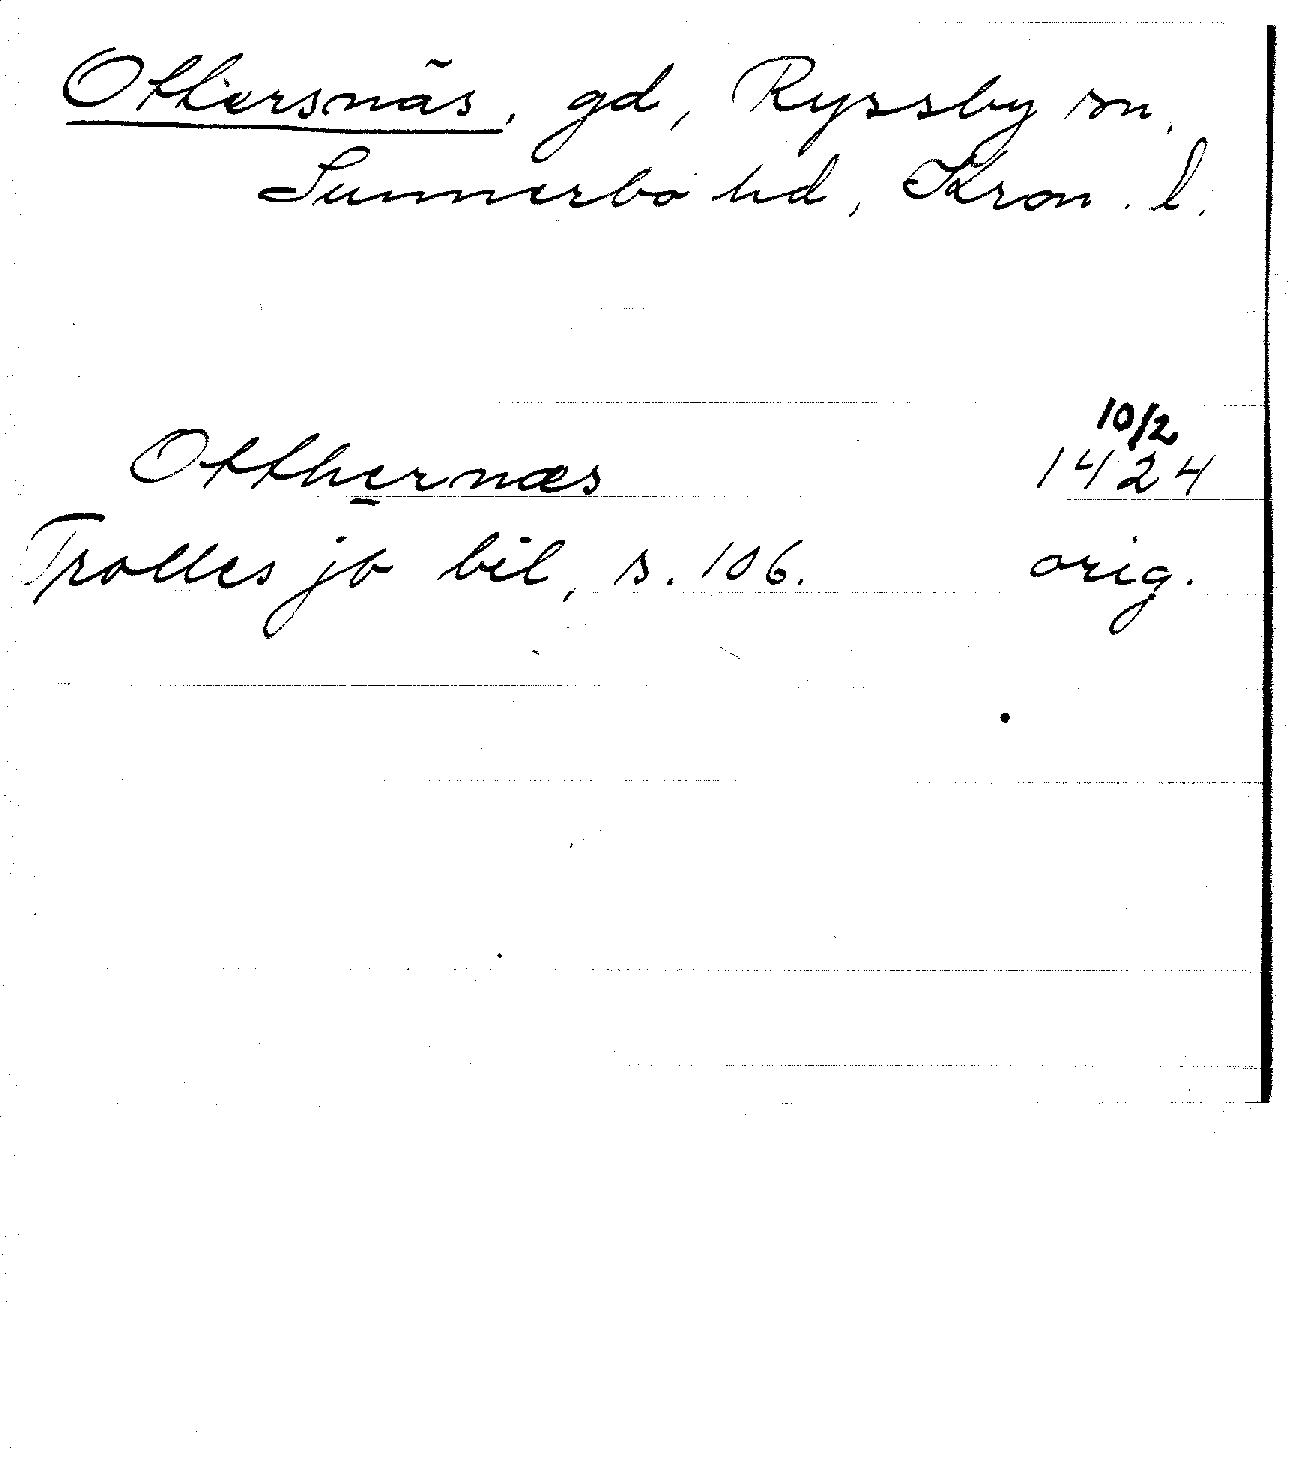 Ottersnäs, gd, Ryssby sn,
Sunnerbo hd, Kron. l.
10/2
Otthernæs 1424
Trolles jo bil, s. 106. orig.